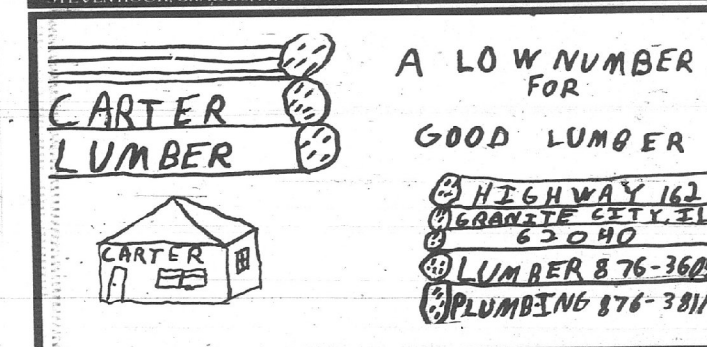 CARTER
LUMBER
CARTER
A LOW NUMBER
FOR
GOOD LUMBER
HIGHWAY 162
GRANITE CITY, IL
62040
LUMBER 876-3605
PLUMBING 876-3811